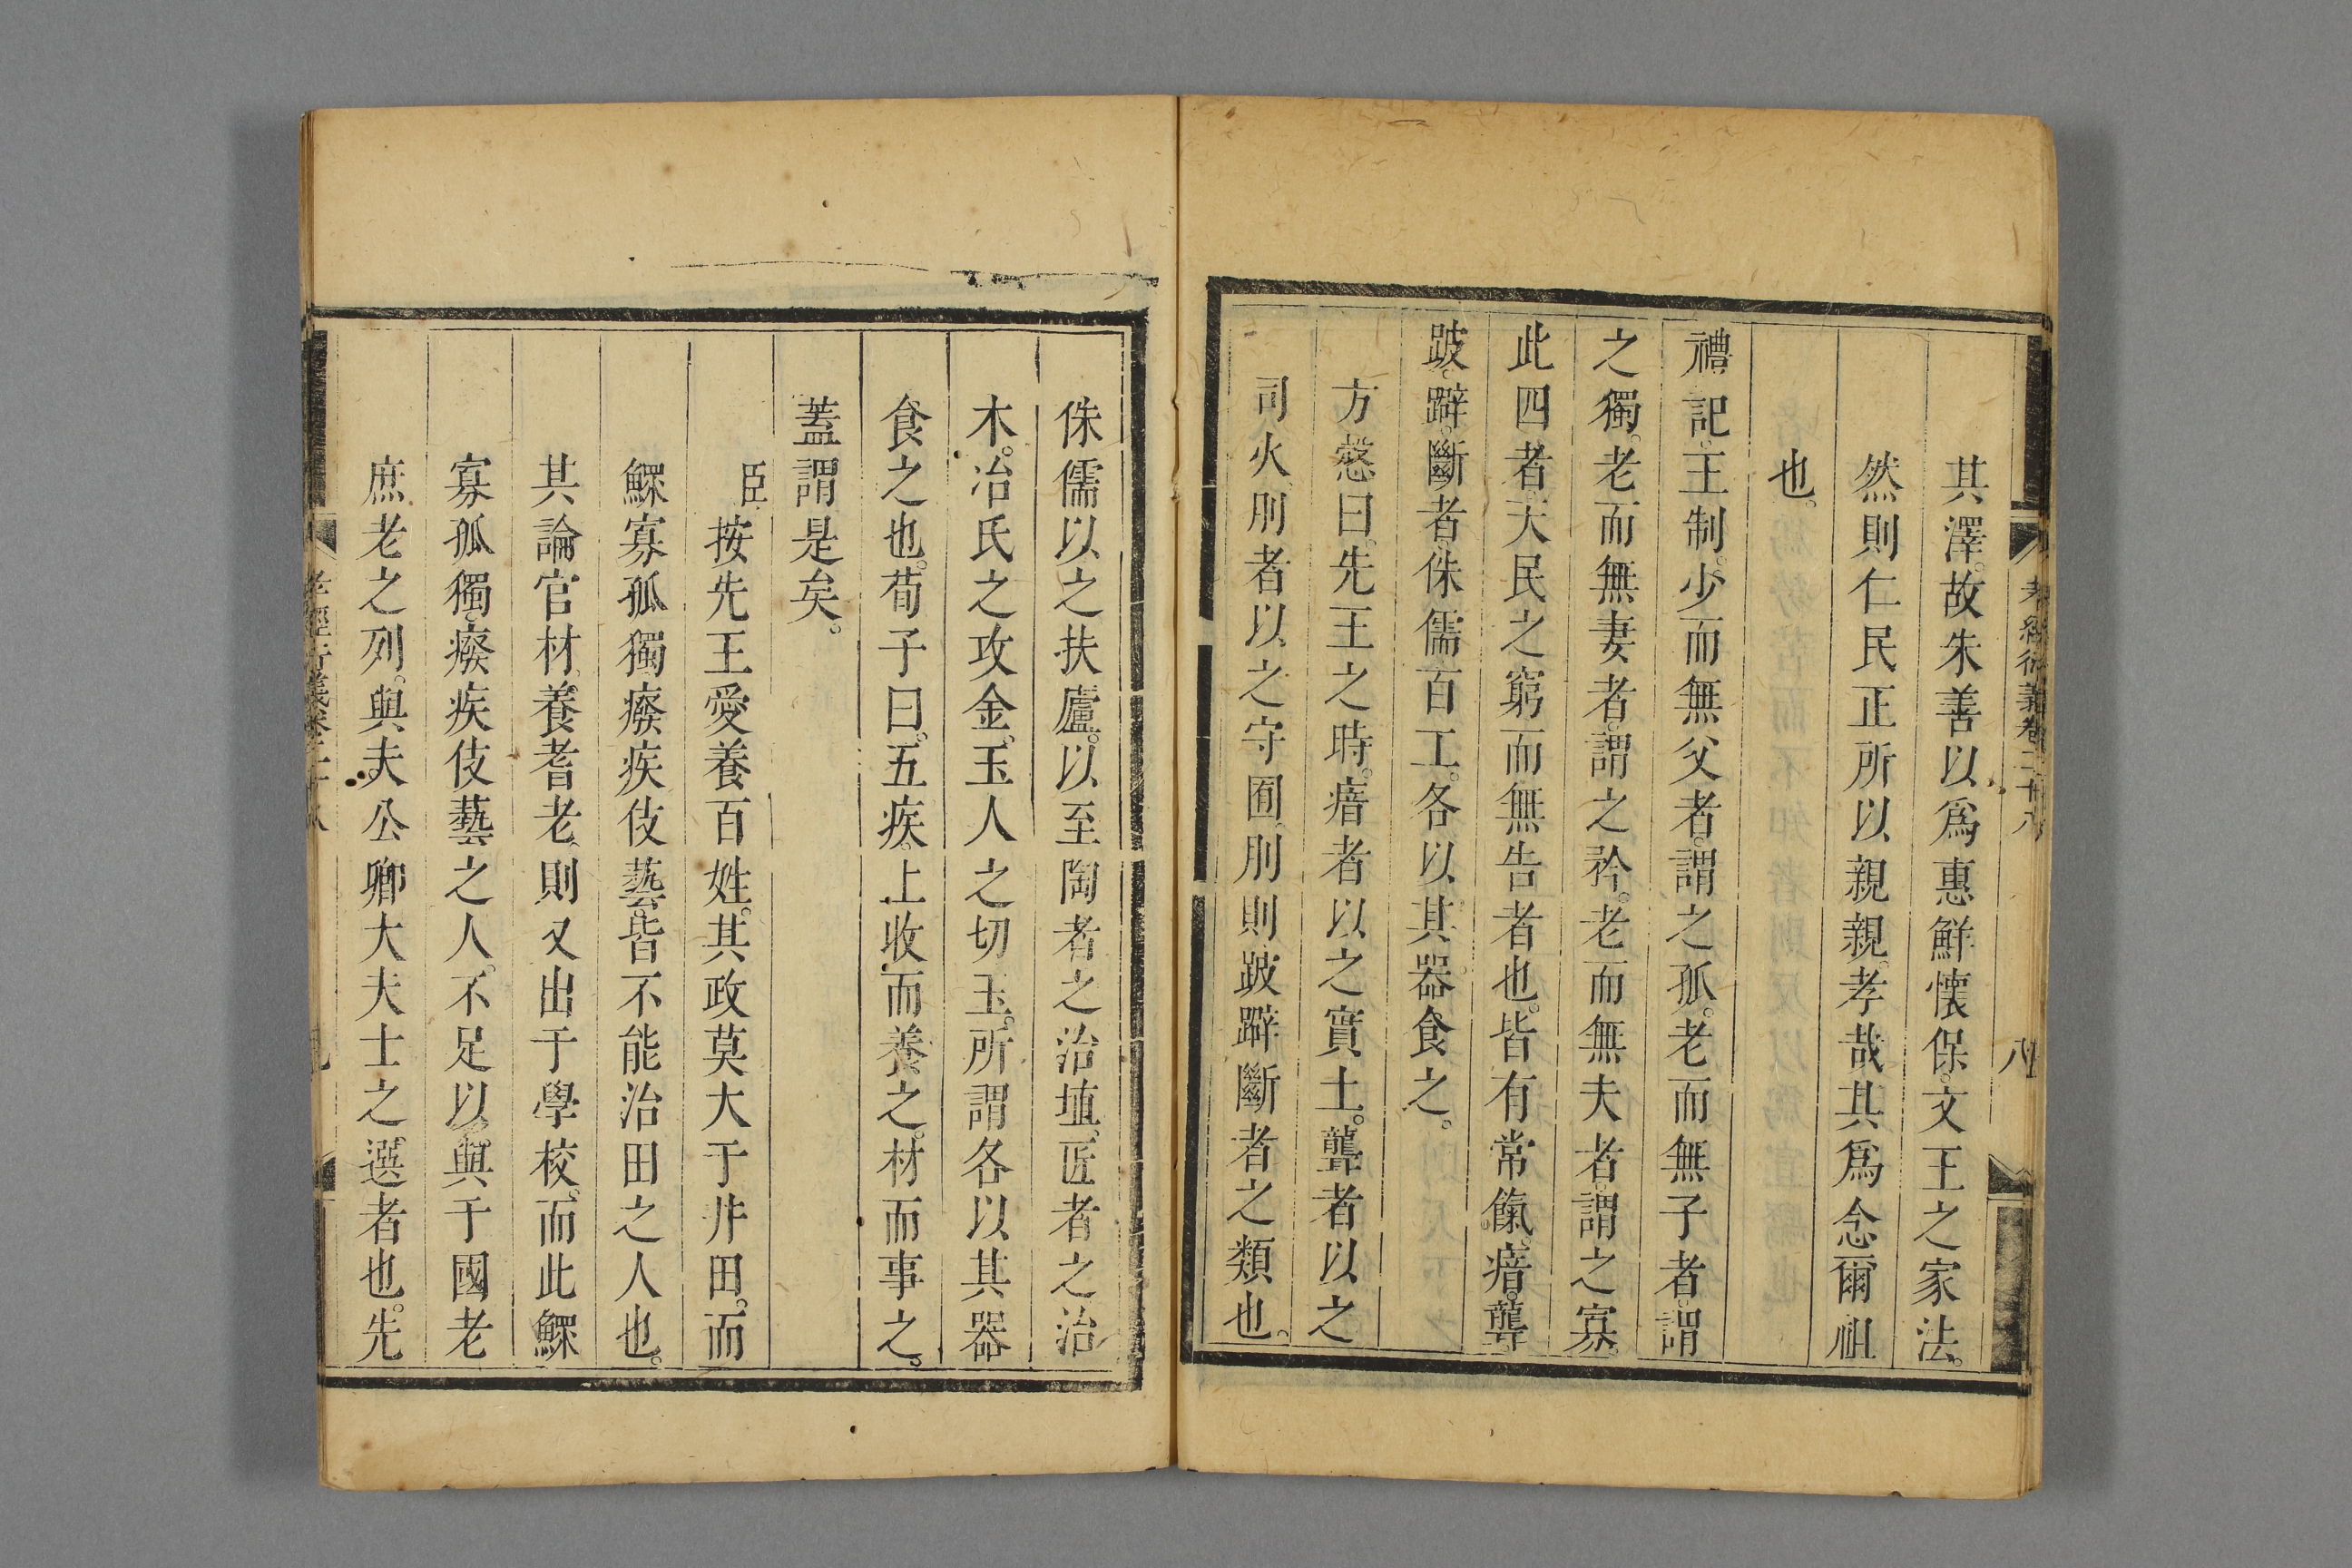 孝經衍義卷二十八
八
其澤。故朱善以爲惠鮮懷保。文王之家法。
然則仁民正所以親親。孝哉其爲念爾祖
也。
禮記。王制。少而無父者。謂之孤。老而無子者。謂
之獨。老而無妻者。謂之矜。老而無夫者。謂之寡。
此四者。天民之窮而無告者也。皆有常餼。瘖。聾。
跛。躃。斷者。侏儒。百工。各以其器食之。
方慤曰。先王之時。瘖者以之實土。聾者以之
司火。刖者以之守囿。刖則跛躃斷者之類也。
侏儒以之扶廬。以至陶者之治埴。匠者之治
木。冶氏之攻金。玉人之切玉。所謂各以其器
食之也。荀子曰。五疾。上收而養之。材而事之。
蓋謂是矣。
臣按先王愛養百姓。其政莫大于井田。而
鰥寡孤獨癈疾伎藝。皆不能治田之人也。
其論官材。養耆老。則又出于學校。而此鰥
寡孤獨。癈疾伎藝之人。不足以與于國老
庶老之列。與夫公卿大夫士之選者也。先
孝經衍義卷二十八
九